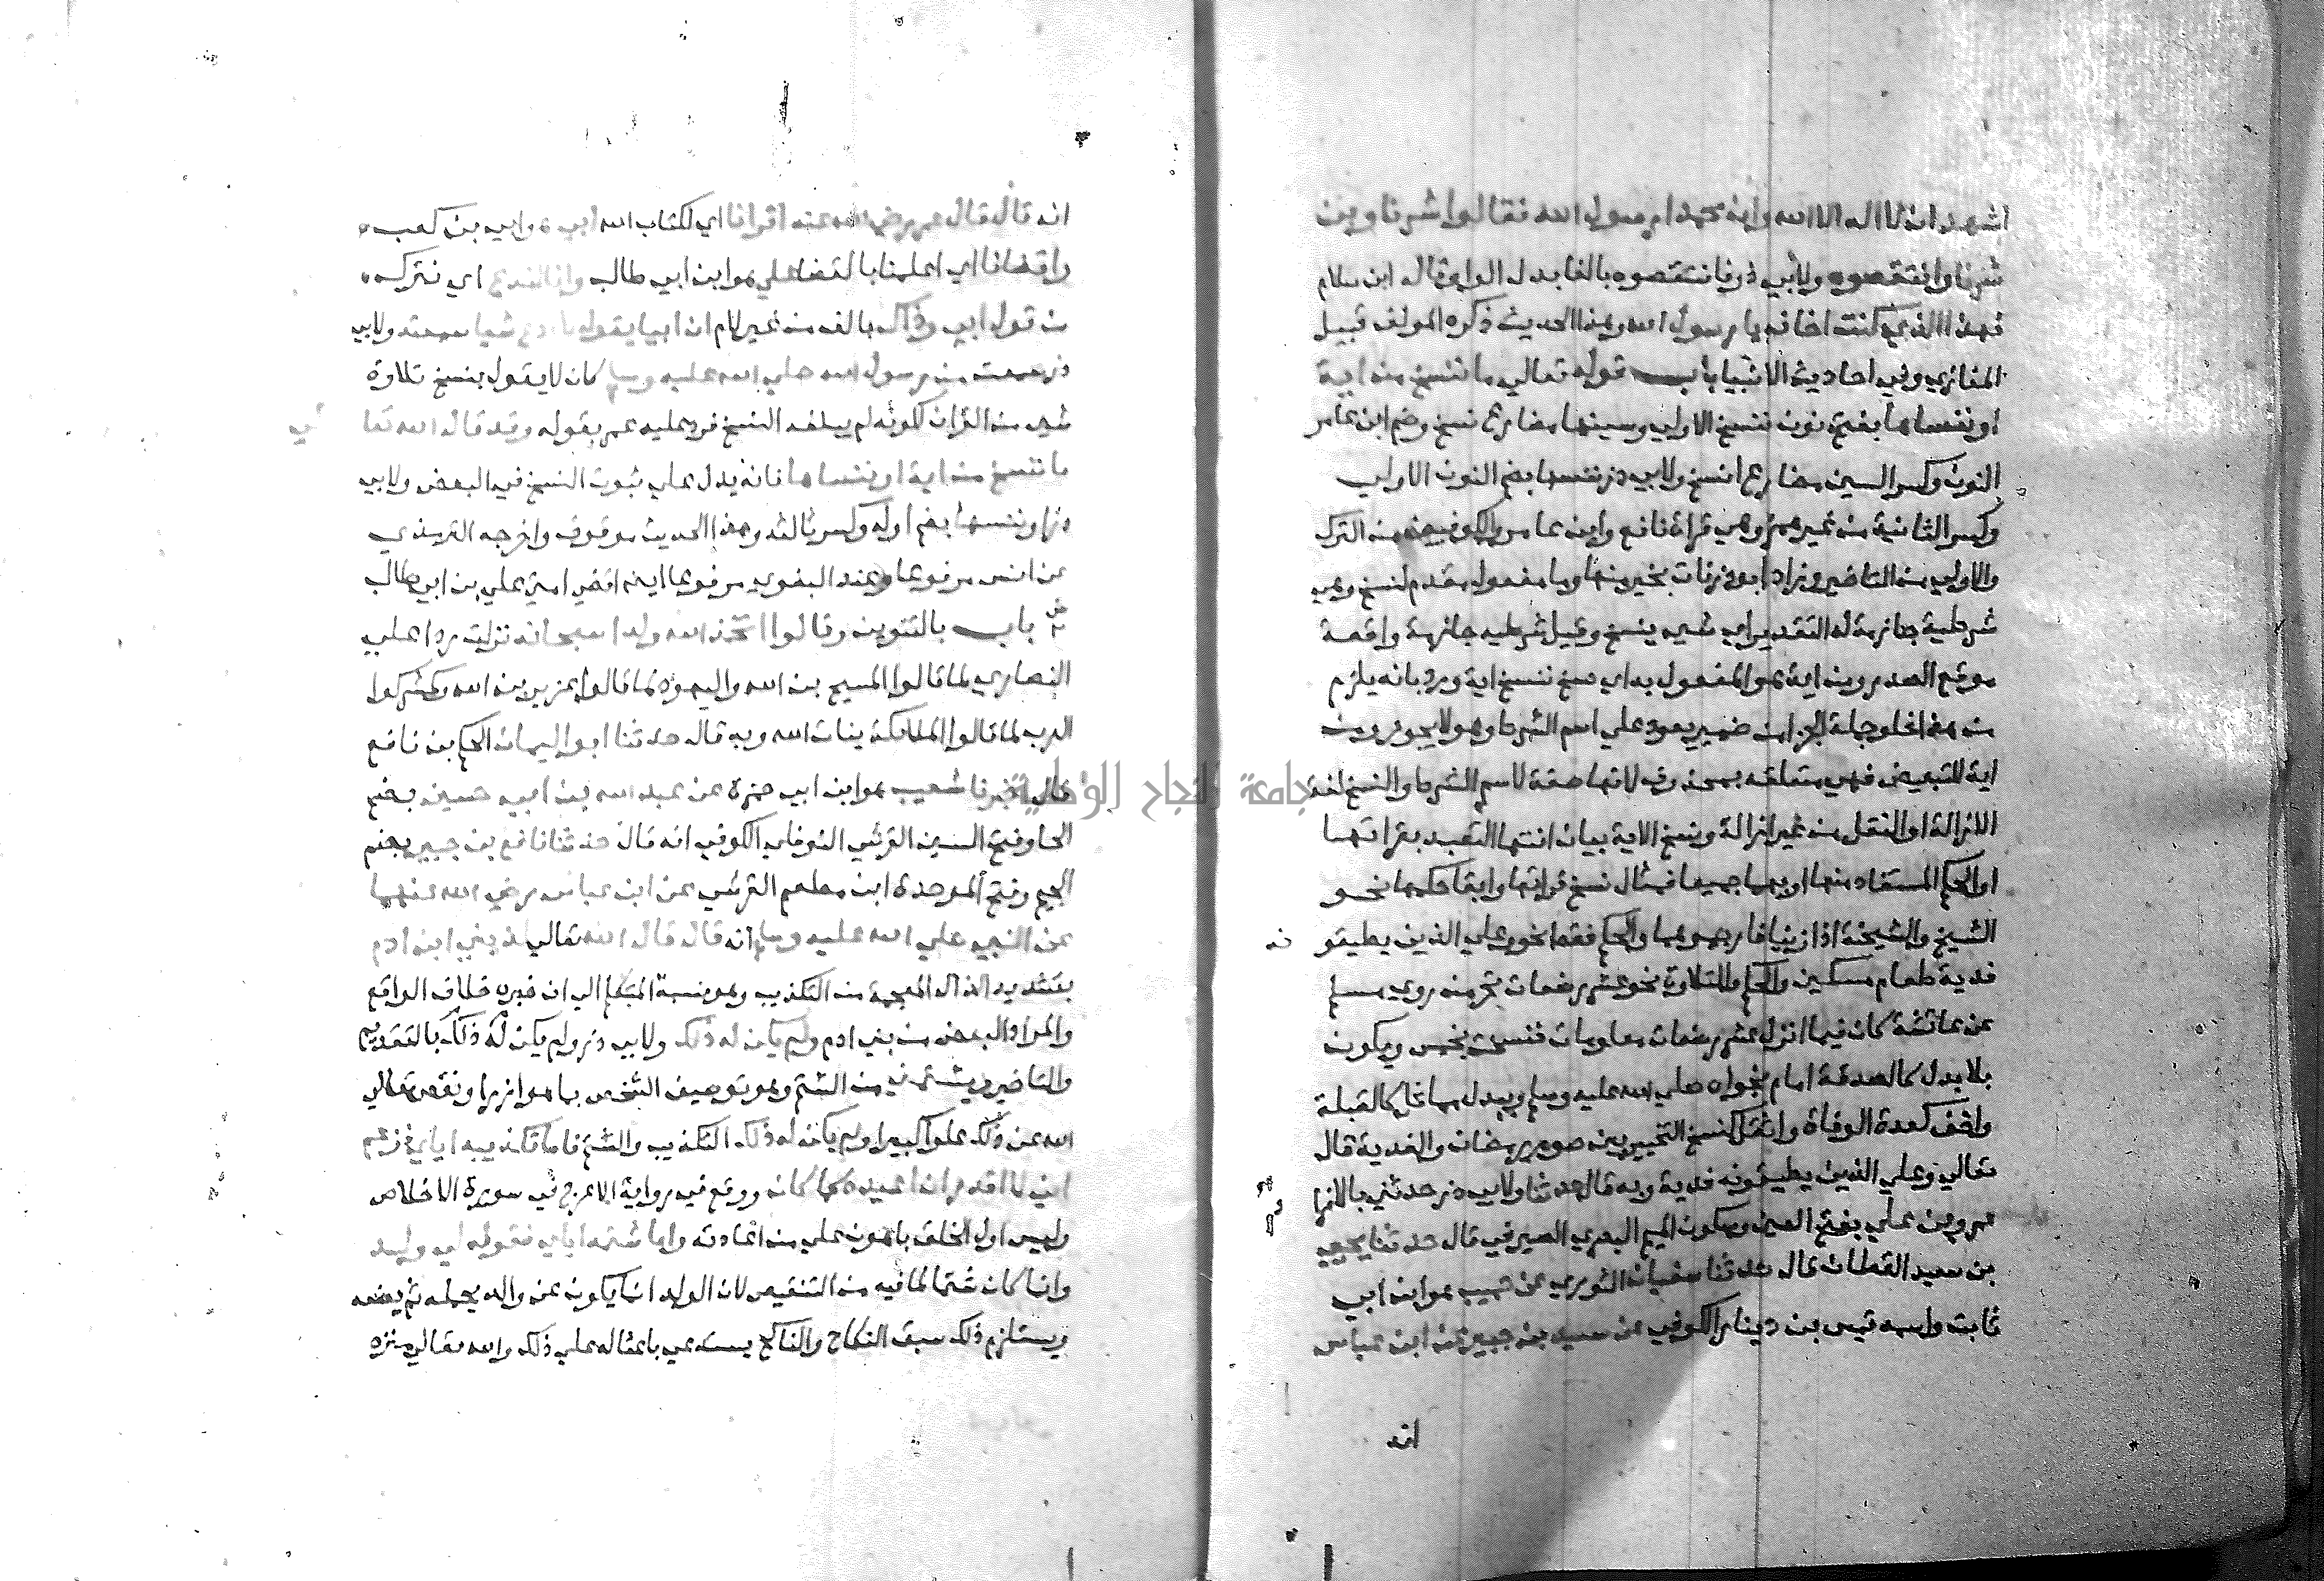 اشهد ان لا اله الا الله وان محمدا رسول الله فقالوا شرنا وبن
شرنا وانتقصوه ولابي ذر فانتقصوه بالفا بدل الواو قال ابن سلام
فهذا الذي كنت اخافه يا رسول الله وهذا الحديث ذكره المولف قبيل
المغازي وفي احاديث الانبيا باب قوله تعالي ما ننسخ من اية
او ننساها بفتح نون ننسخ الاولي وسينها مضارع نسخ وضم ابن عامر
النون وكسر السين مضارع انسخ ولابي ذر ننسها بضم النون الاولي
وكسر الثانية من غير همز وهي قراة نافع وابن عامر والكوفيين من الترك
والاولي من التاخير وزاد ابو ذر نات بخير منها وما مفعول مقدم لننسخ وهي
شرطية جازمة له التقدير اي شي ننسخ وقيل شرطيه جازمة واقعة
موقع المصدر ومن اية هو المفعول به اي نسخ ننسخ اية ورد بانه يلزم
من هذا خلو جملة الجزا من ضمير يعود علي اسم الشرط وهو لا يجوز ومن
اية للتبعيض فهي متعلقه بمحذوف لانها صفة لاسم الشرط والنسخ لغة
الازالة او النقل من غير ازالة ونسخ الاية بيان انتها التعبد بقراتها
او الحكم المستفاد منها او بهما جميعا فمثال نسخ قراتها وابقا حكمها نحو
الشيخ والشيخة اذا زنيا فارجموهما والحكم فقط نحو وعلي الذين يطيقو نه
فدية طعام مسكين والحكم والتلاوة نحو عشر رضعات يحرمن روي مسلم
عن عائشة كان فيما انزل عشر رضعات معلومات فنسخت بخمس ويكون
بلا بدل كالصدقة امام نجواه صلي الله عليه وسلم وببدل مماثل كالقبلة
واخف كعدة الوفاة واثقل كنسخ التخيير بين صوم رمضان والفدية قال
تعالي وعلي الذين يطيقونه فدية وبه قال حدثنا ولابي ذر حدثني بالافرا
عمرو بن علي بفتح العين وسكون الميم البصري الصيرفي قال حدثنا يحيي
بن سعيد القطان قال حدثنا سفيان الثوري عن حبيب هو ابن ابي
ثابت واسمه قيس بن دينار الكوفي عن سعيد بن جبير عن ابن عباس
انه
انه قال قال عمر رضي الله عنه اقرانا اي لكتاب الله ابي هو ابي بن كعب
واقضانا اي اعلمنا بالقضا علي هو ابن ابي طالب وانا لندع اي نترك
من قول ابي وذاك بالف من غير لام ان ابيا يقول لا ادع شيا سمعته ولابي
ذر سمعت من رسول الله صلي الله عليه وسلم كان لا يقول بنسخ تلاوة
شي من القران لكونه لم يبلغه النسخ فرد عليه عمر بقوله وقد قال الله تعا لي
ما ننسخ من اية او ننساها فانه يدل علي ثبوت النسخ في البعض ولابي
ذر او ننسها بضم اوله وكسر ثالثه وهذا الحديث موقوف واخرجه الترمذي
عن انس مرفوعا وعند البغوي مرفوعا ايضا اقضي امتي علي بن ابي طالب
باب بالتنوين وقالوا اتخذ الله ولدا سبحانه نزلت ردا علي
النصاري لما قالوا المسيح بن الله واليهود لما قالوا عزير بن الله ومشركوا
العرب لما قالوا الملائكة بنات الله وبه قال حدثنا ابو اليمان الحكم بن نافع
قال اخبرنا شعيب هو ابن ابي حمزة عن عبد الله بن ابي حسين بضم
الحا وفتح السين القرشي النوفلي الكوفي انه قال حدثنا نافع بن جبير بضم
الجيم وفتح الموحدة ابن مطعم القرشي عن ابن عباس رضي الله عنهما
عن النبي صلي الله عليه وسلم انه قال قال الله تعالي كذبني ابن ادم
بتشديد الذال المعجمة من التكذيب وهو نسبة المتكلم الي ان خبره خلاف الواقع
والمراد البعض من بني ادم ولم يكن له ذلك ولابي ذر ولم يكن له ذلك بالتقديم
والتاخير وشتمني من الشتم وهو توصيف الشخص بما هو ازرا ونقص تعالي
الله عن ذلك علوا كبيرا ولم يكن له ذلك التكذيب والشتم فاما تكذيبه اياي فزعم
اني لا اقدر ان اعيده كما كان ووقع في رواية الاعرج في سورة الاخلاص
وليس اول الخلق باهون علي من اعادته واما شتمه اياي فقوله لي ولد
وانما كان شتما لما فيه من التنقيص لان الولد انما يكون عن والد يحمله ثم يضعه
ويستلزم ذلك سبق النكاح والناكح يستدعي باعثا له علي ذلك والله تعالي منزه
جامعة النجاح الوطنية